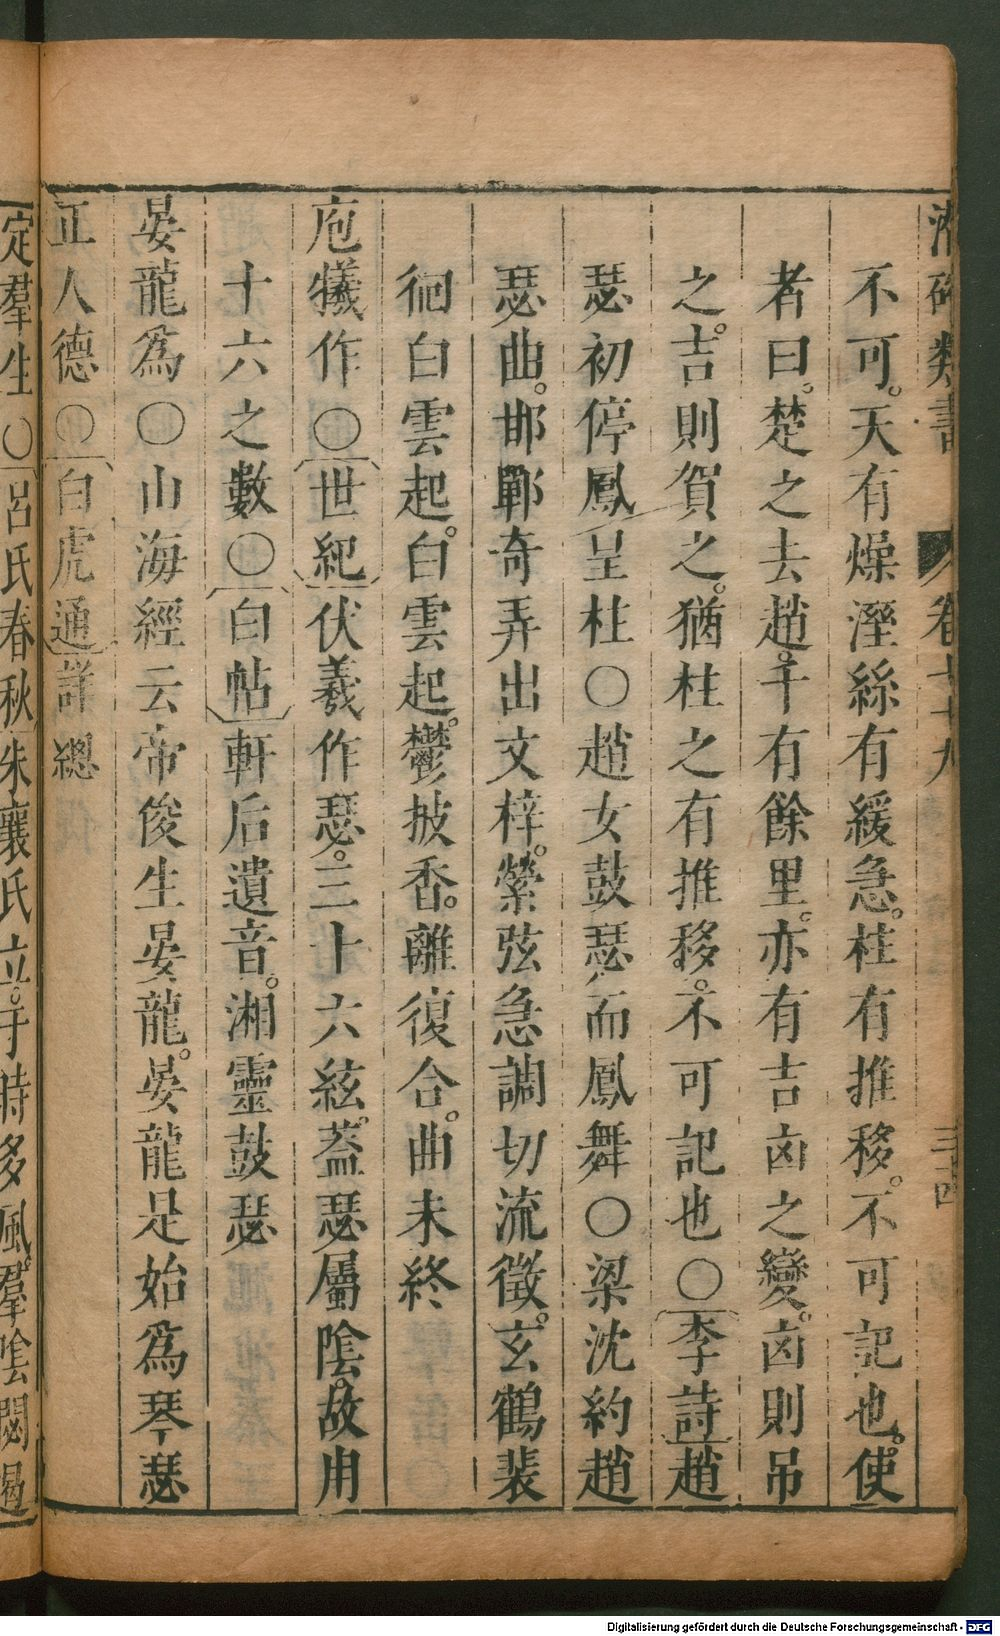 類書 卷七十九 三十四
不可。天有燥溼絲有緩急。柱有推移。不可記也。使
者曰。楚之去趙。千有餘里。亦有吉凶之變。凶則吊
之。吉則賀之。猶柱之有推移。不可記也○李詩趙
瑟初停鳳呈柱○趙女鼓瑟而鳳舞○梁沈約趙
瑟曲。邯鄲奇弄出文梓。縈弦急調切流徵。玄鶴裴
徊白雲起。白雲起。鬱披香。離復合。曲未終
庖犧作○世紀伏羲作瑟。三十六絃。蓋瑟屬陰。故用
十六之數○白帖軒后遺音。湘靈鼓瑟
晏龍爲○山海經云帝俊生晏龍。晏龍是始爲琴瑟
正人德○白虎通詳總
定羣生○呂氏春秋朱襄氏立。于時多風。羣陰閟遏
Digitalisierung gefördert durch die Deutsche Forschungsgemeinschaft - DFG